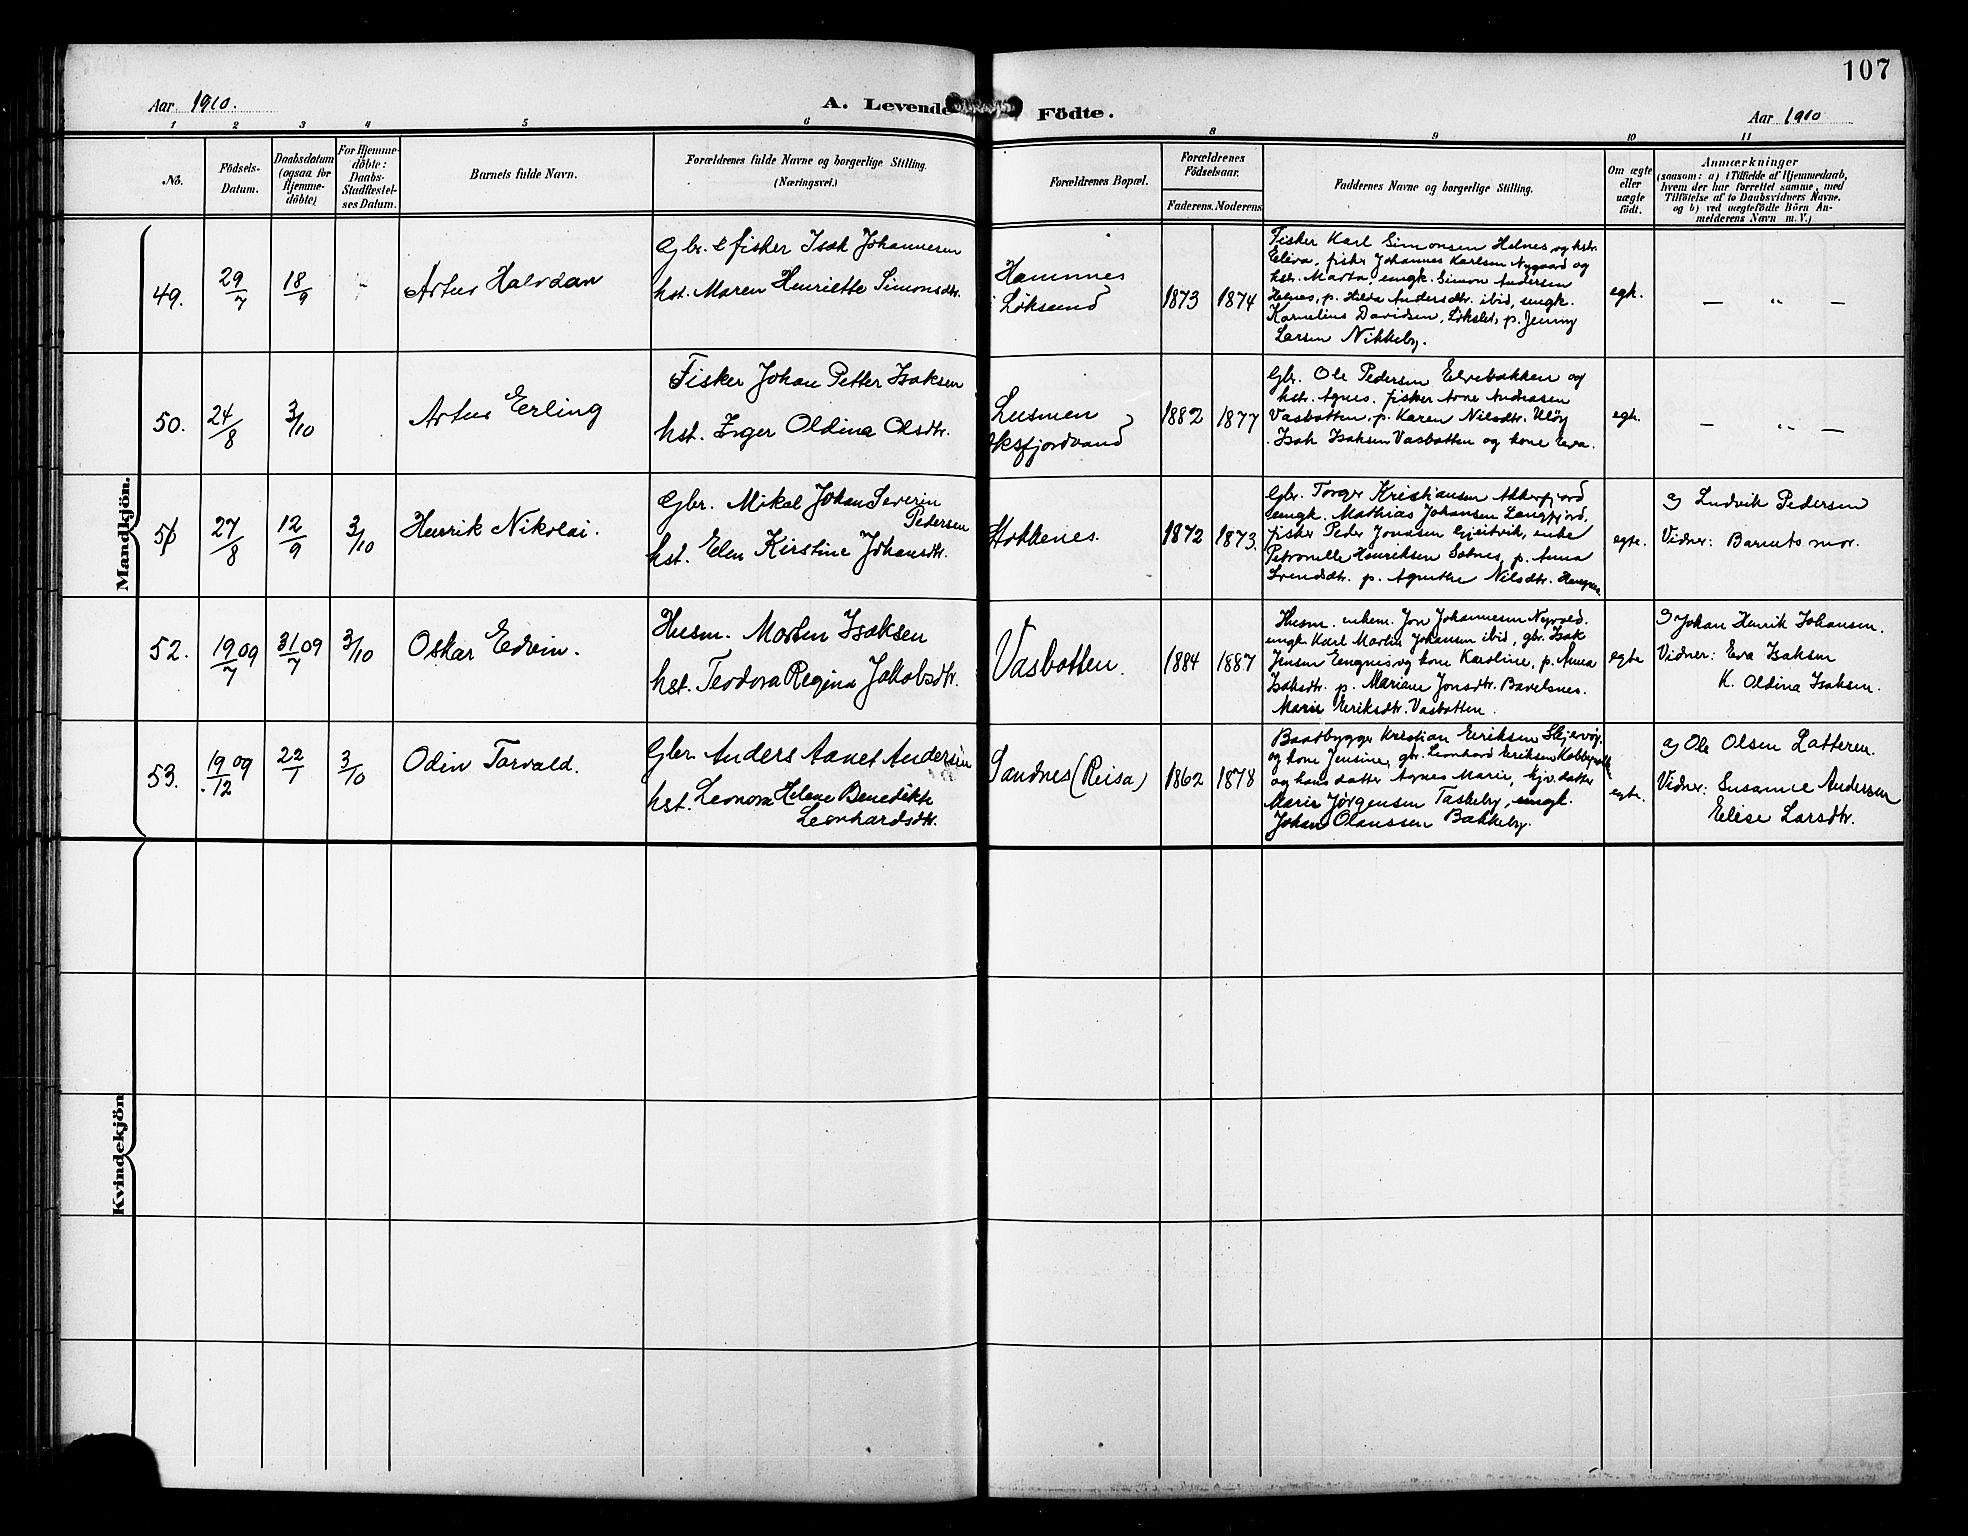 107
Aar 1910.
A. Levende Födte.
Aar 1910
1 2 3 4 5 6 8 9 10 11
No.
Födsels-
Datum.
Daabsdatum
(ogsaa for
Hjemme-
döbte)
For Hjemme-
döbte:
Daabs-
Stadfæstel-
ses Datum.
Barnets fulde Navn.
Forældrenes fulde Navne og borgerlige Stilling.
(Næringsvei.)
Forældrenes Bopæl.
Forældrenes
Födselsaar.
Faderens. Moderens
Faddernes Navne og borgerlige Stilling.
Om ægte
eller
uægte
födt.
Anmærkninger
(saasom: a) i Tilfælde af Hjemmedaab,
hvem der har forrettet samme, med
Tilföielse af to Daabsvidners Navne.
og b) ved uægtefödte Börn An-
melderens Navn m. V.)
Mandkjön.
49.
29/7
18/9
Artur Halvdan
Gbr. & fisker Isak Johannesen
hst. Maren Henriette Simonsdtr.
Hamnnes
Løksund
1873 1874
Fisker Karl Simonsen Helnes og hstr.
Eliva, fisker Johannes Karlsen Nygaard og
hstr. Marta, ungk. Simon Andersen
Helnes, p. Hilda Andersdtr. ibid, ungk.
Kornelius Davidsen, Løkslet, p. Jenny
Larsen Nikkeby.
egt.
— " —
50.
24/8
3/10
Artur Erling
Fisker Johan Petter Isaksen
hst. Inger Oldina Olsdtr.
1882 1877
Gbr. Ole Pedersen Elvebakken og
hstr. Agnes. fisker Arne Andreasen
Vasbotten. p. Karen Nilsdtr. Uløy
Isak Isaksen Vasbotten og kone Eva.
egte.
— " —
51
27/8
12/9
3/10
Henrik Nikolai.
Gbr. Mikal Johan Severin
Pedersen
hst. Elen Kirstine Johansdtr.
Stokkenes.
1872 1873.
Gbr. Torger Kristiansen Alterfjord
ungk. Mathias Johansen Langfjord,
fisker Peder Jonassen Gjeitvik, enke
Petronelle Henriksen p. Anna
Svendsdtr. p. Agnethe Nilsdtr.
egte.
a) Ludvik Pedersen
Vidner: Barnets mor.
52.
19/7 09
31/7 09
3/10
Oskar Edvin.
Husm. Morten Isaksen
hst. Teodora Regina Jakobsdtr.
Vasbotten.
1884 1887
Husm. enkem. Jon Johannesen Nyvold.
ungk Karl Martin Johansen ibid, gbr. Isak
Jensen Engnes og kone Karoline, p. Anna
Isaksdtr. p. Mariane Jonsdtr. Bavelsnes.
Marie Eriksdtr. Vasbotten.
egte
a) Johan Henrik Johansen.
Vidner: Eva Isaksen
K. Oldina Isaksen.
53.
19/12 09
22/1
3/10
Odin Torvald.
Gbr. Anders Aanet Andersen
hst. Leonora Helene Benedikte
Leonhardsdtr.
Sandnes (Reisa)
1862 1878
Baadbygger Kristian Eriksen Skjervøy.
og kone Jensine, gbr. Leonhard Eriksen
og hans datter Agnes Marie, gjv. datter
Marie Jørgensen Taskeby, ungk.
Johan Olaussen Bakkeby.
egte.
a) Ole Olsen Latteren.
Vidner: Susanne Andersen
Elise Larsdtr.
Kvindekjön